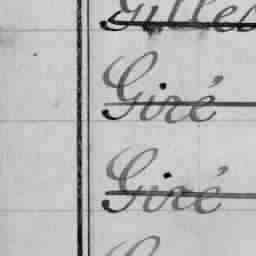 Giré
Giré